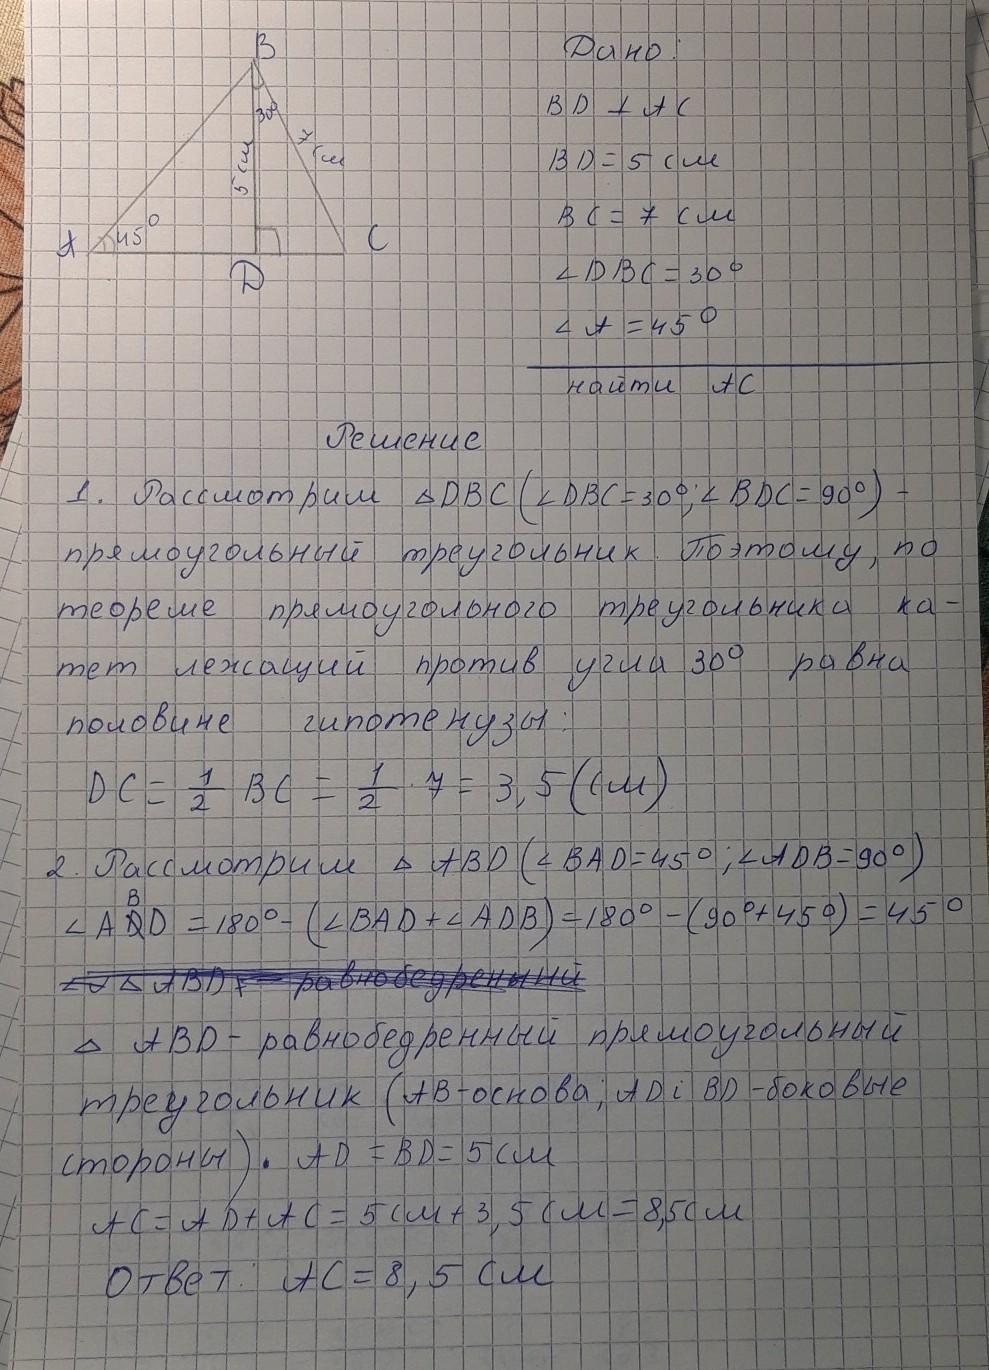 B
30°
7 см
5 см
A
45°
C
D
Дано:
BD ⊥ AC
BD = 5 см
BC = 7 см
∠DBC = 30°
∠A = 45°
найти AC
Решение
1. Рассмотрим △DBC (∠DBC = 30°; ∠BDC = 90°) -
прямоугольный треугольник. Поэтому, по
теореме прямоугольного треугольника ка-
тет лежащий против угла 30° равна
половине гипотенузы:
DC = 1/2 BC = 1/2 · 7 = 3,5 (см)
2. Рассмотрим △ ABD (∠BAD = 45°; ∠ADB = 90°)
∠ABD = 180° - (∠BAD + ∠ADB) = 180° - (90° + 45°) = 45°
△ ABD - равнобедренный
△ ABD - равнобедренный прямоугольный
треугольник (AB - основа; AD і BD - боковые
стороны). AD = BD = 5 см
AC = AD + AC = 5 см + 3,5 см = 8,5 см
Ответ: AC = 8,5 см